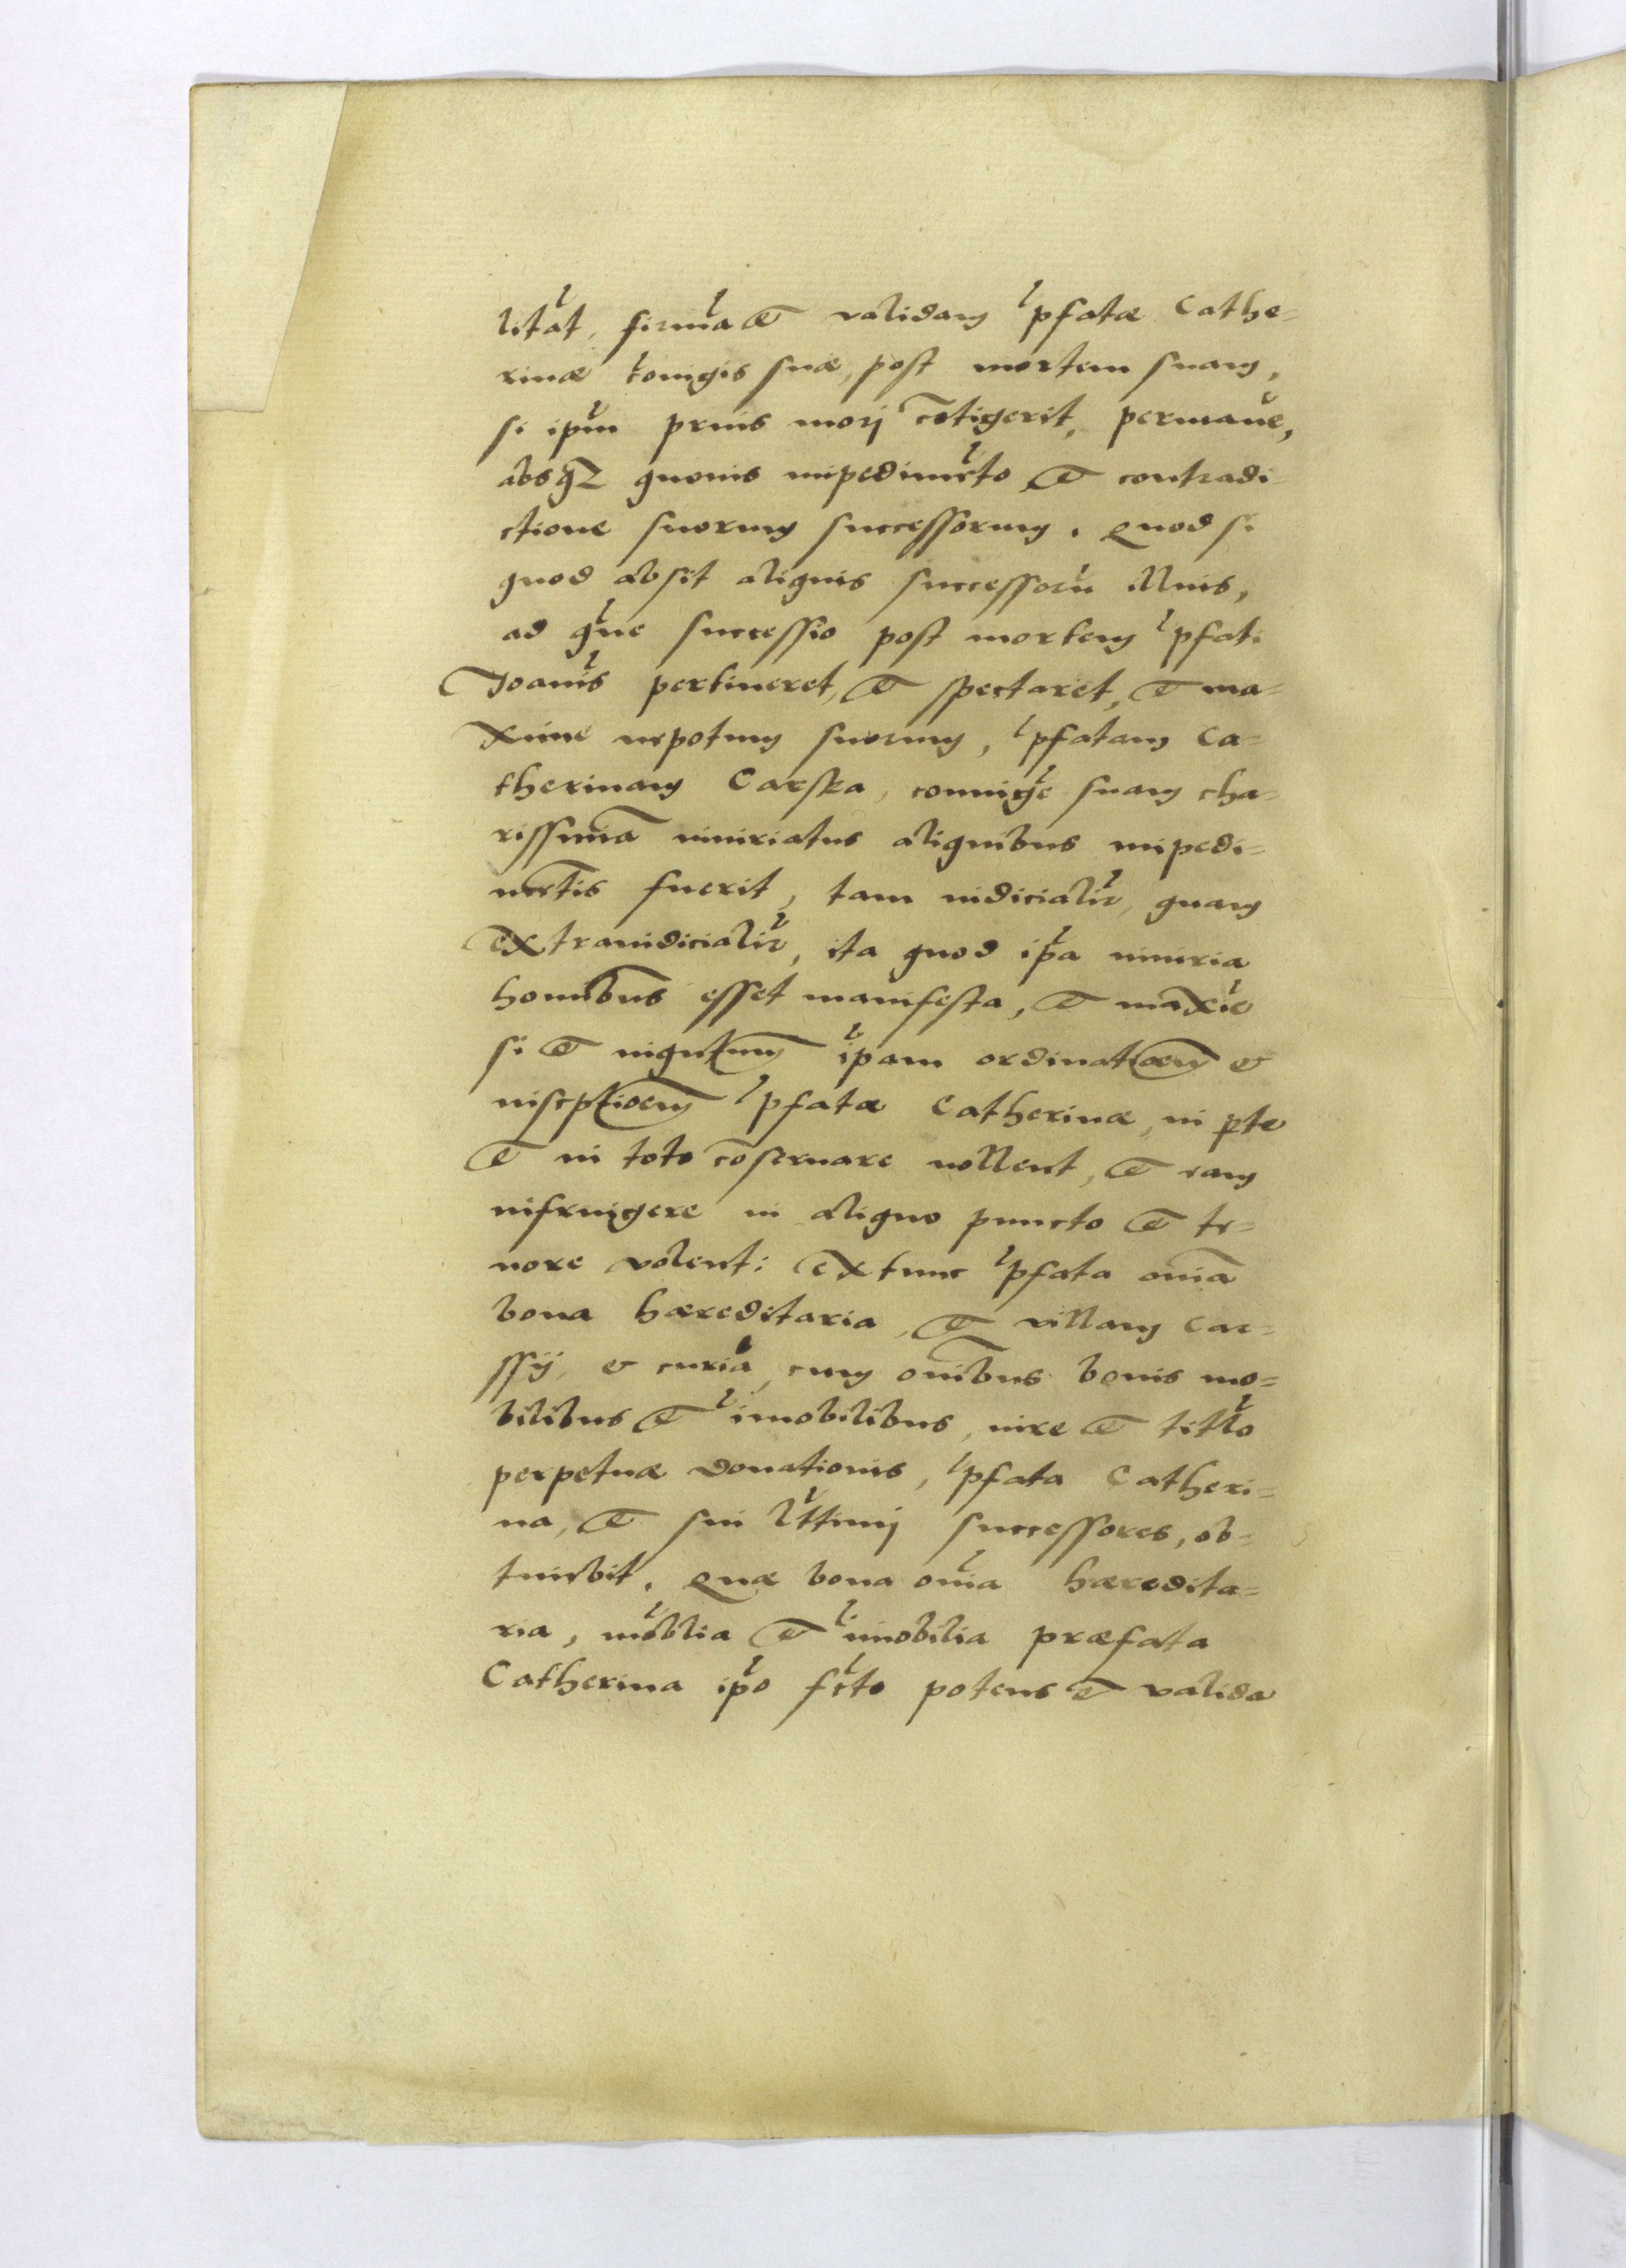 litat, firma et validam pfatæ Cathe=
rinæ cōiugis suæ, post mortem suam,
si ipm prius morj cōtigerit, permane,
absq3 quouis impedimēto et contradi
ctione suorum successorum. Quod si
quod absit aliquis successorū illius,
ad que successio post mortem pfati
Joanis pertineret, et spectaret, et ma=
xime nepotum suorum, pfatam Ca=
therinam Carska, coniuge suam cha=
rissimā iniuriatus aliquibus impedi=
mētis fuerit, tam iudicialir, quam
extraiudicialir, ita quod ipa iniuria
homībus esset manifesta, et maxie
si et ipam ordinatioem et
īscptioem pfatæ Catherinæ, in pte
et in toto cōseruare nollent, et eam
infringere in aliquo puncto et te=
nore volent: extunc pfata omīa
bona hæreditaria, et villam Car=
ssij, et curiā, cum omībus bonis mo=
bilibus et imobilibus, iure et titlo
perpetuæ donationis, pfata Catheri=
na, et sui lttimj successores, ob=
tinebit. Quæ bona omia hæredita=
ria, moblia et imobilia præfata
Catherina ipo fcto potens et valida